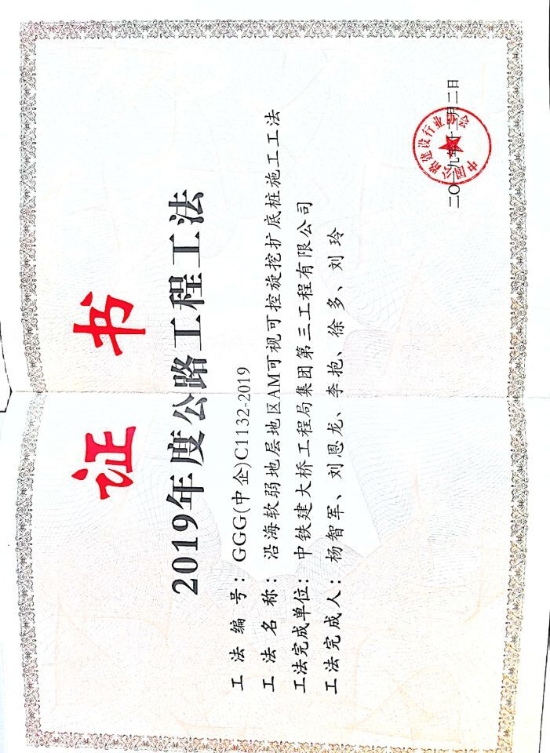 证书
2019年度公路工程工法
工法编号：GGG(中企)C1132-2019
工法名称：沿海软弱地层地区AM可视可控旋挖扩底桩施工工法
工法完成单位：中铁建大桥工程局集团第三工程有限公司
工法完成人：杨智军、刘恩龙、李抱、徐多、刘玲
中国公路建设行业协会
二〇一九年十二月二日